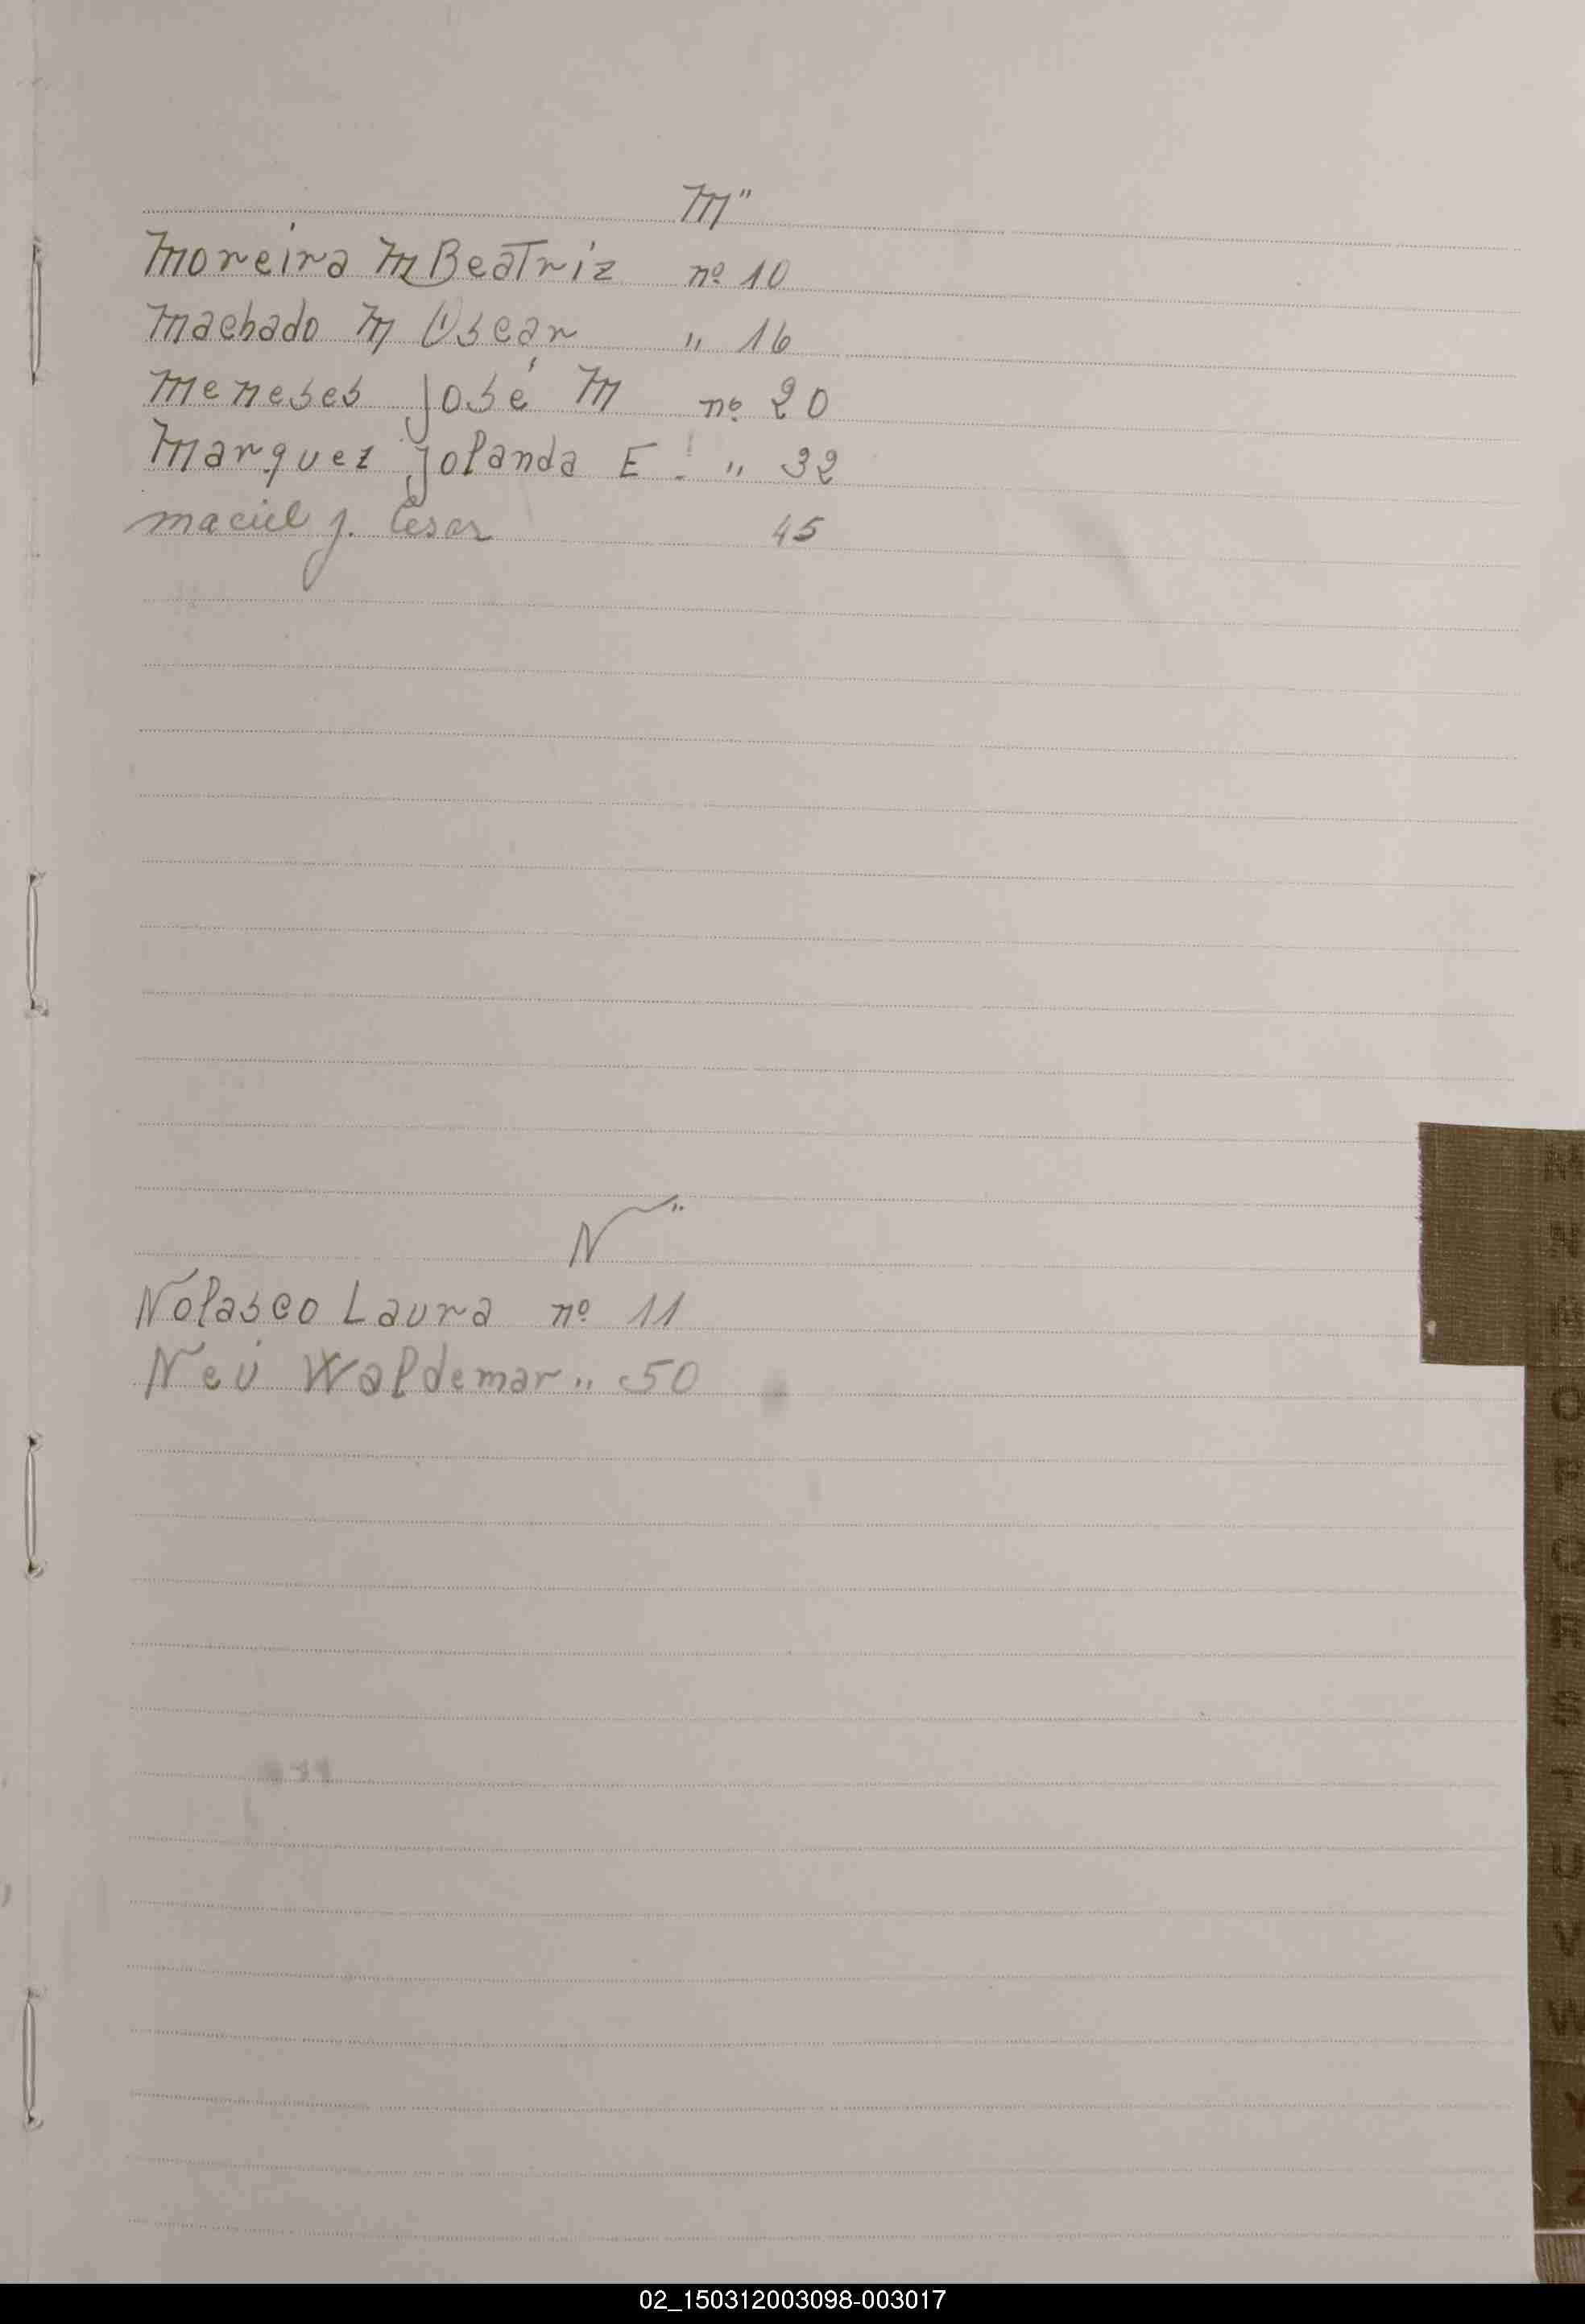 M"
Moreira M Beatriz nº 10
Machado M Oscar " 16
Meneses José M nº 20
Marquez Jolanda E. " 32
maciel J. Cesar 45
N"
Nolasco Laura nº 11
Neú Waldemar " 50
02_150312003098-003017